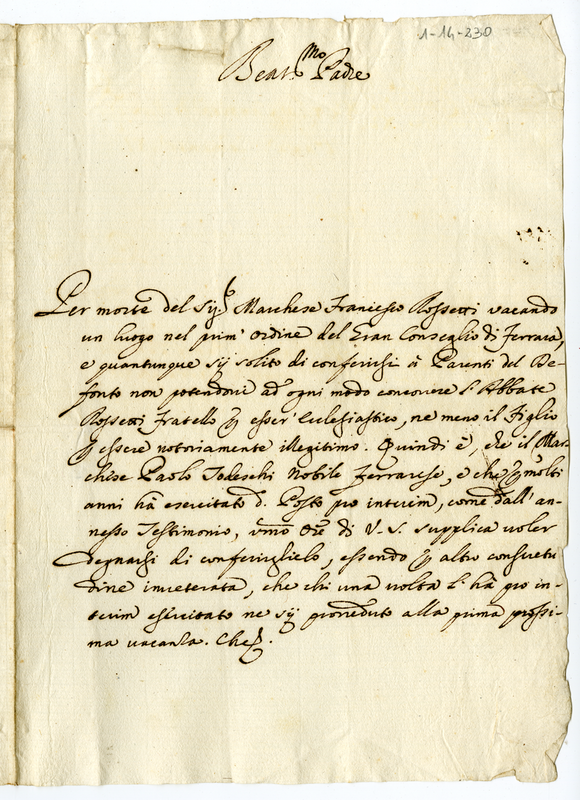 1-14-230
Beat.mo Padre
Per morte del Sig.r Marchese Francesco Rossetti vacando
un luogo nel prim' ordine del Gran Conseglio di Ferrara,
e quantunque sij solito di conferirsi à Parenti del De-
fonto non potendovi ad ogni modo concorrere l'Abbate
Rossetti Fratello p esser' Eclesiastico, ne meno il Figlio
p essere notoriamente illegitimo. Quindi è, che il Mar-
chese Paolo Todeschi Nobile Ferrarese, e che p molti
anni hà esercitato d. Posto pro interim, come dall' an-
nesso Testimonio, umo Ore di V. S. supplica voler
degnarsi di conferirglielo, essendo p altro consuetu
dine inveterata, che chi una volta l' hà pro in-
terim esercitato ne sij proveduto alla prima prossi-
ma vacanza. Che